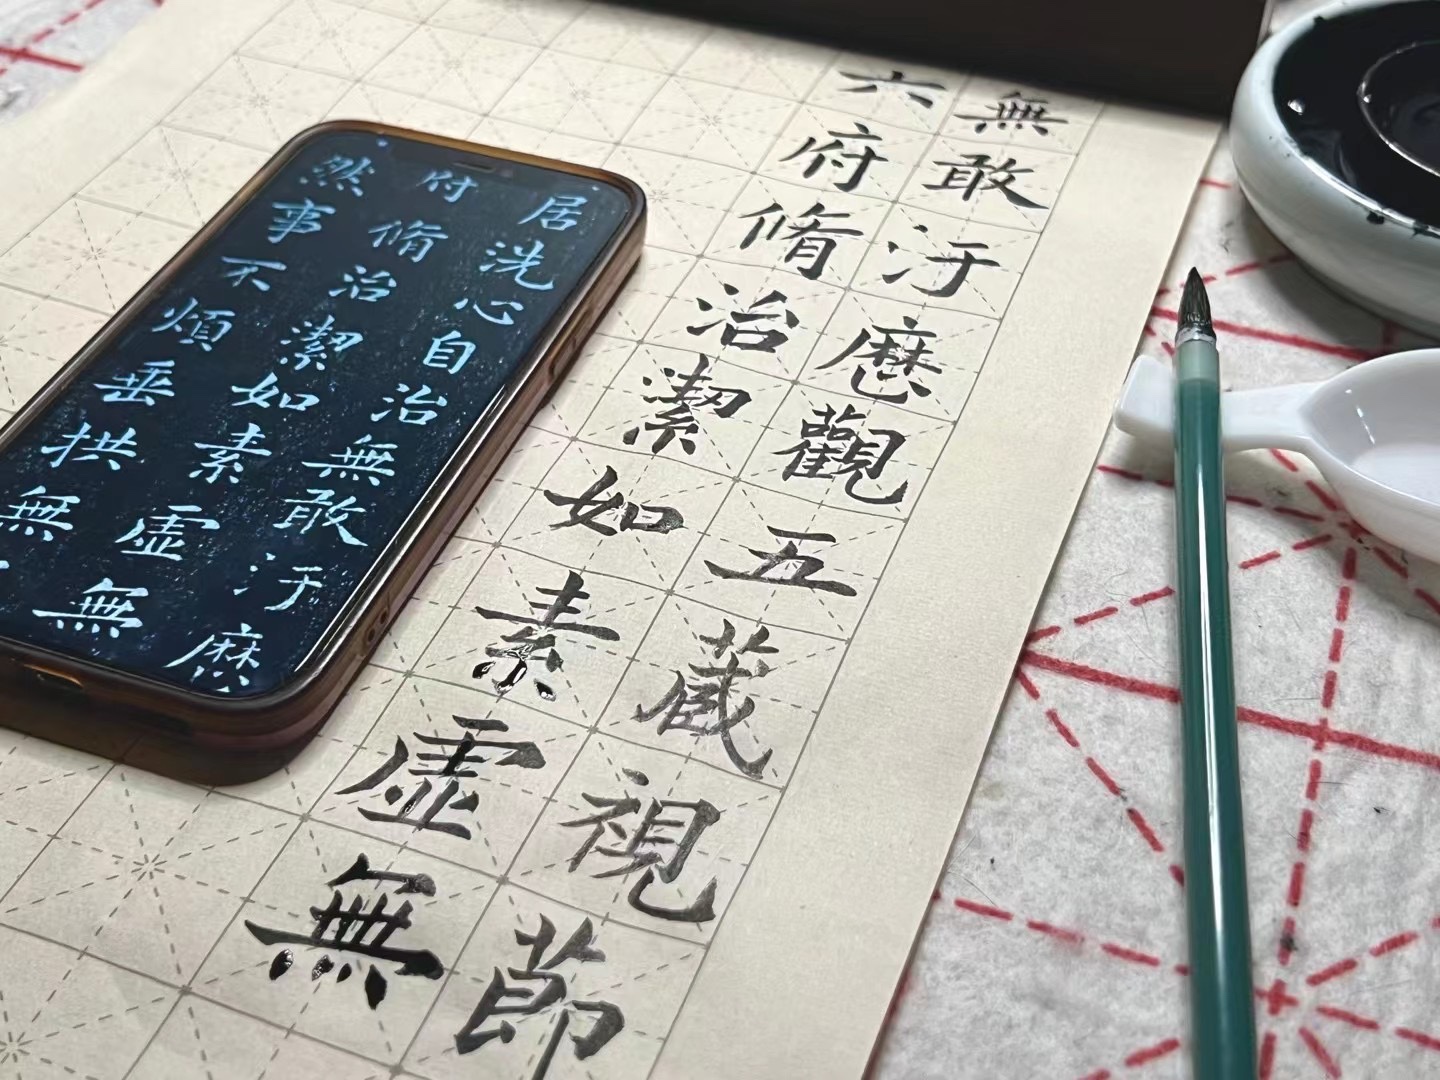 無敢汙歷觀五藏視節
六府脩治潔如素虛無
居洗心自治無敢汙歷
府脩治潔如素虛無
然事不煩垂拱無